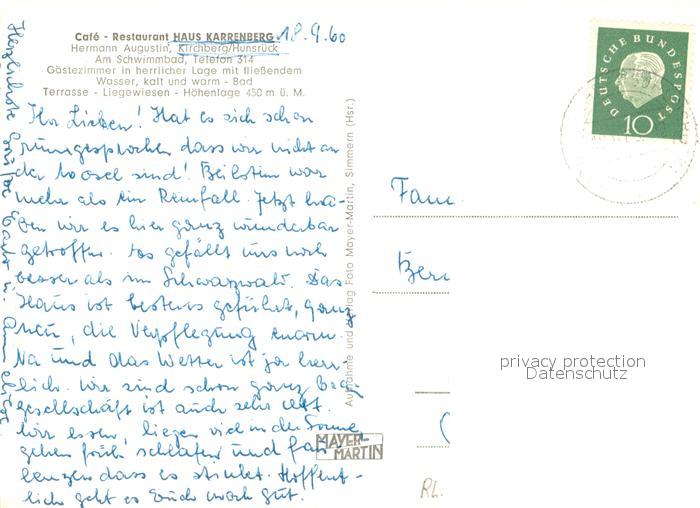 Café - Restaurant HAUS KARRENBERG 18.9.60
Hermann Augustin, Kirchberg/Hunsrück
Am Schwimmbad, Telefon 314
Gästezimmer in herrlicher Lage mit fließendem
Wasser, kalt und warm - Bad
Terrasse - Liegewiesen - Höhenlage 450 m ü. M.
Ihr Lieben! Hat es sich schon
rumgesprochen dass wir nicht an
der Mosel sind! Beilstein war
mehr als ein Reinfall. Jetzt ha-
ben wir es hier ganz wunderbar
getroffen. Es gefällt uns noch
besser als im Schwarzwald. Das
Haus ist bestens geführt, ganz
neu, die Verpflegung enorm.
Na und das Wetter ist ja herr-
lich. Wir sind schon ganz
gesellschaft ist auch sehr nett.
Wir essen, liegen viel in der Sonne
gehen früh schlafen und fau-
lenzen dass es stinkt. Hoffent-
lich geht es Euch noch gut.
Herzlichste Grüße
Aufnahme und Verlag Foto Mayer-Martin, Simmern (Hsr.)
MAYER-
MARTIN
DEUTSCHE BUNDESPOST
10
Fam.
Rh.
privacy protection
Datenschutz